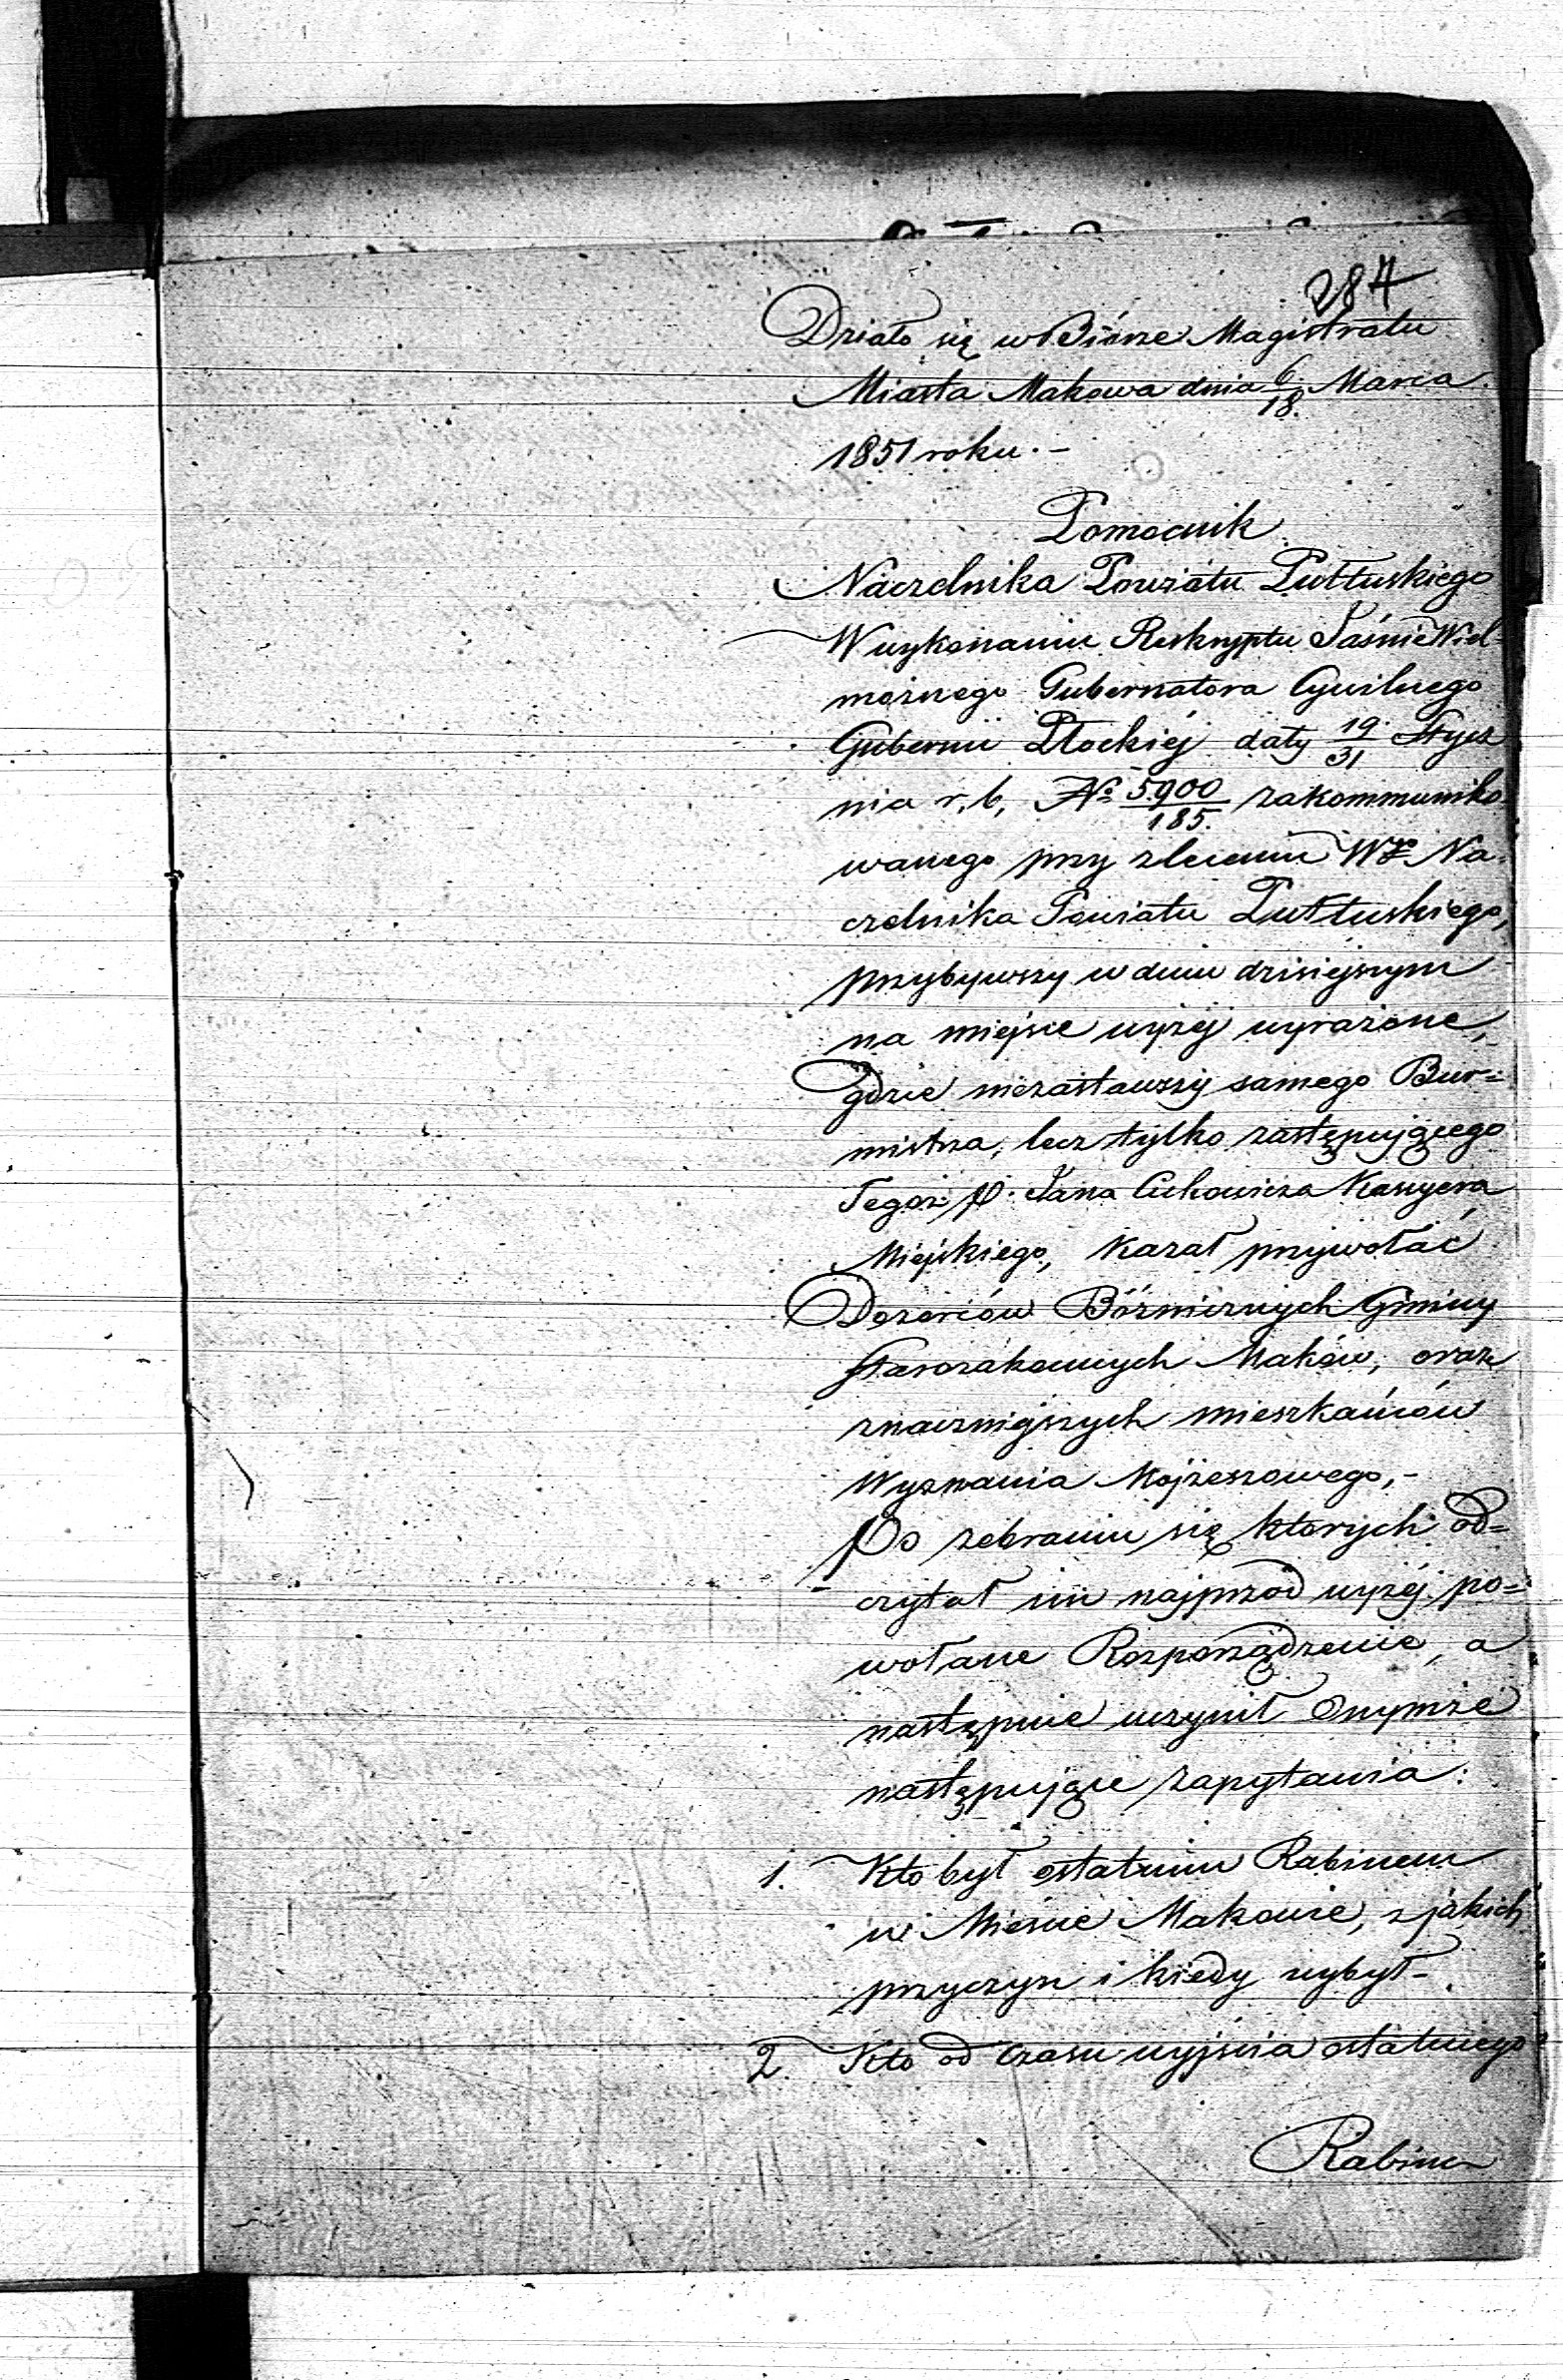 287
Działo się w Biórze Magistratu
Miasta Makowa dnia 6/18. Marca
1851 roku. –
Pomocnik
Naczelnika Powiatu Pułtuskiego
W wykonaniu Reskryptu Jaśnie Wiel=
możnego Gubernatora Cywilnego
Gubernii Płockiéj daty 19/31 Stycz
nia r, b, No 5900/185. zakommuniko
wanego przy zleceniu Wgo Na=
czelnika Powiatu Pułtuskiego,
przybywszy w dniu dzisiejszym
na miejsce wyżéj wyrażone,
gdzie niezastawszy samego Bur=
mistrza, lecz tylko zastępującego
Tegoż P. Jana Cukowicza Kassyera
Miejskiego, kazał przywołać
Dozorców Bóżniczych Gminy
Starozakonnych Maków, oraz
znaczniejszych mieszkańców
Wyznania Mojżeszowego, –
Po zebraniu się których od=
czytał im najprzód wyżéj po=
wołane Rozporządzenie, a
następnie uczynił Onymże
następujące zapytania:
1. Kto był ostatnim Rabinem
w Mieście Makowie, z jakich
przyczyn i kiedy ubył –
2. Kto od czasu wyjścia ostatniego
Rabina